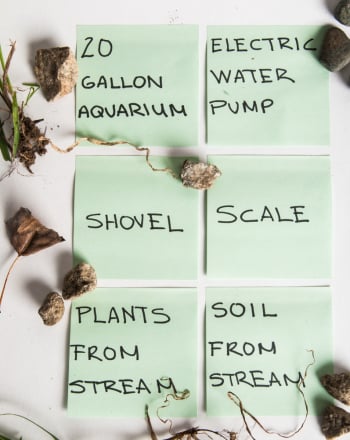 20
GALLON
AQUARIUM
ELECTRIC
WATER
PUMP
SHOVEL
SCALE
PLANTS
FROM
STREAM
SOIL
FROM
STREAM